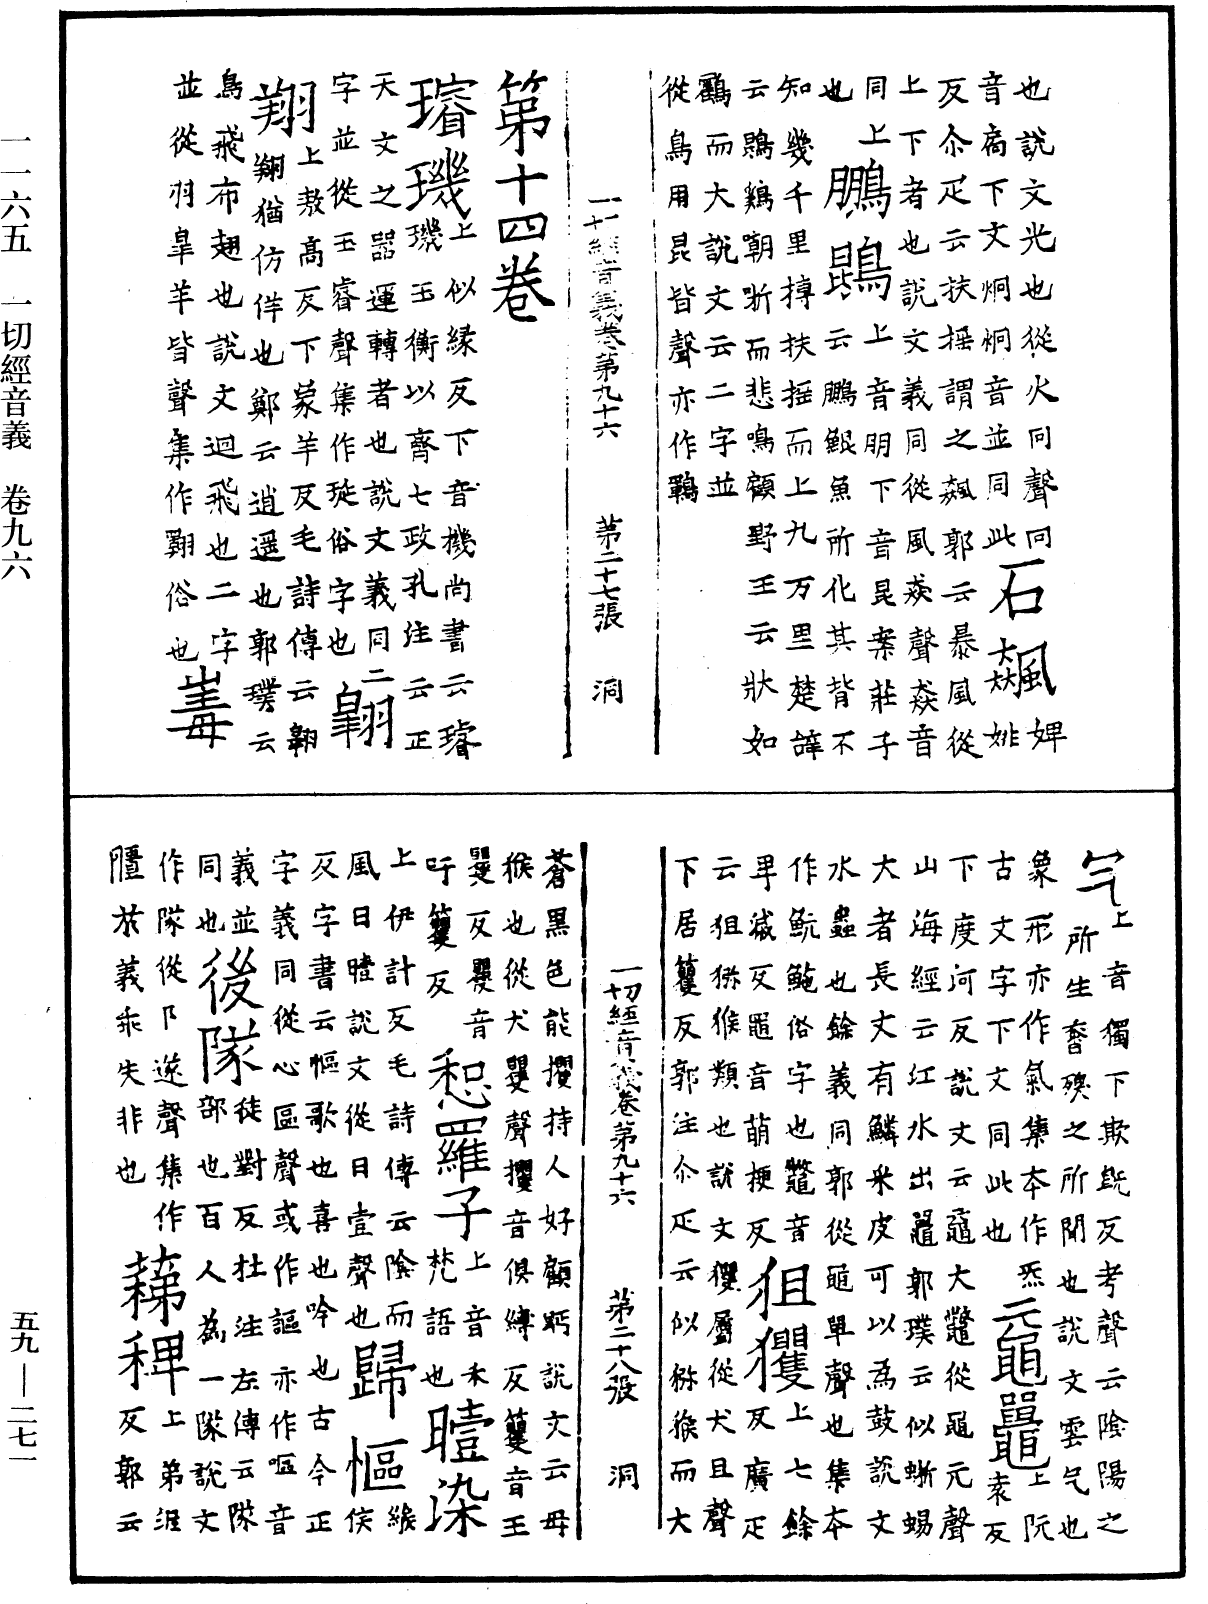 一一六五　一切經音義　卷九六
也說文光也從火冋聲冋
音扃下文炯炯音並同此石飆婢姚
反尒疋云扶摇謂之飆郭云暴風從
上下者也說文義同從風猋聲猋音
同上鵬鶤上音朋下音昆案莊子
也云鵬鯤魚所化其背不
知幾千里摶扶摇而上九万里楚辝
云鶤鷄嘲哳而悲鳴顧野王云狀如
鸖而大說文云二字並
從鳥用昆皆聲亦作鶤
一切經音義卷第九十六　第二十七張　洞
第十四卷
璿璣上似縁反下音機尚書云璿
璣玉衡以齊七政孔注云正
天文之器運轉者也說文義同二
字並從玉睿聲集作琁俗字也翺
翔上敖高反下蒙羊反毛詩傳云翱
翔猶仿佯也鄭云逍遥也郭璞云
鳥飛布翅也說文迴飛也二字
並從羽皐羊皆聲集作翺俗也毒
气上音獨下欺旣反考聲云陰陽之
所生奮殠之所聞也說文雲气也
象形亦作氣集本作炁元黿鼉上阮袁反
古文字下文同此也
下度河反說文云黿大鼈從黽元聲
山海經云江水出鼉郭璞云似蜥蜴
大者長丈有鱗采皮可以為鼓說文
水蟲也餘義同郭從黽單聲也集本
作魭鮀俗字也鼈音
卑滅反黽音萌梗反狙玃上七餘反廣疋
云狙猕猴類也說文玃屬從犬且聲
下居籰反郭注尒疋云似猕猴而大
一切經音義卷第九十六　第二十八張　洞
蒼黑色能攫持人好顧眄說文云母
猴也從犬矍聲攫音俱縛反籰音王
矍反矍音
吁籰反惒羅子上音禾梵語也曀染
上伊計反毛詩傳云陰而
風日曀說文從日壹聲也歸慪
反字書云慪歌也喜也吟也古今正
字義同從心區聲或作謳亦作嘔音
義並同也後隊徒對反杜注左傳云隊
部也百人為一隊說文
作隊從阝㒸聲集作
𦡀於義乖失非也蕛稗上弟泥反郭云
五九—二七一